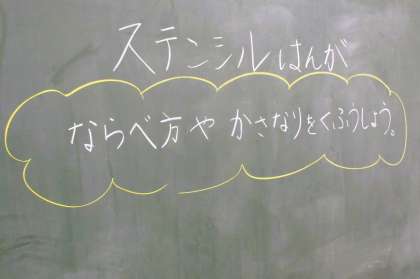 ステンシルはんが
ならべ方や かさなりをくふうしよう。